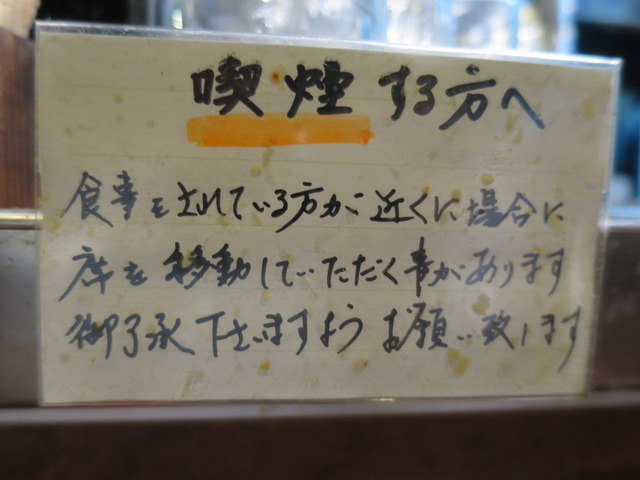 喫煙する方へ
食事をされている方が近くに場合に
席を移動していただく事があります
御了承下さいますようお願い致します